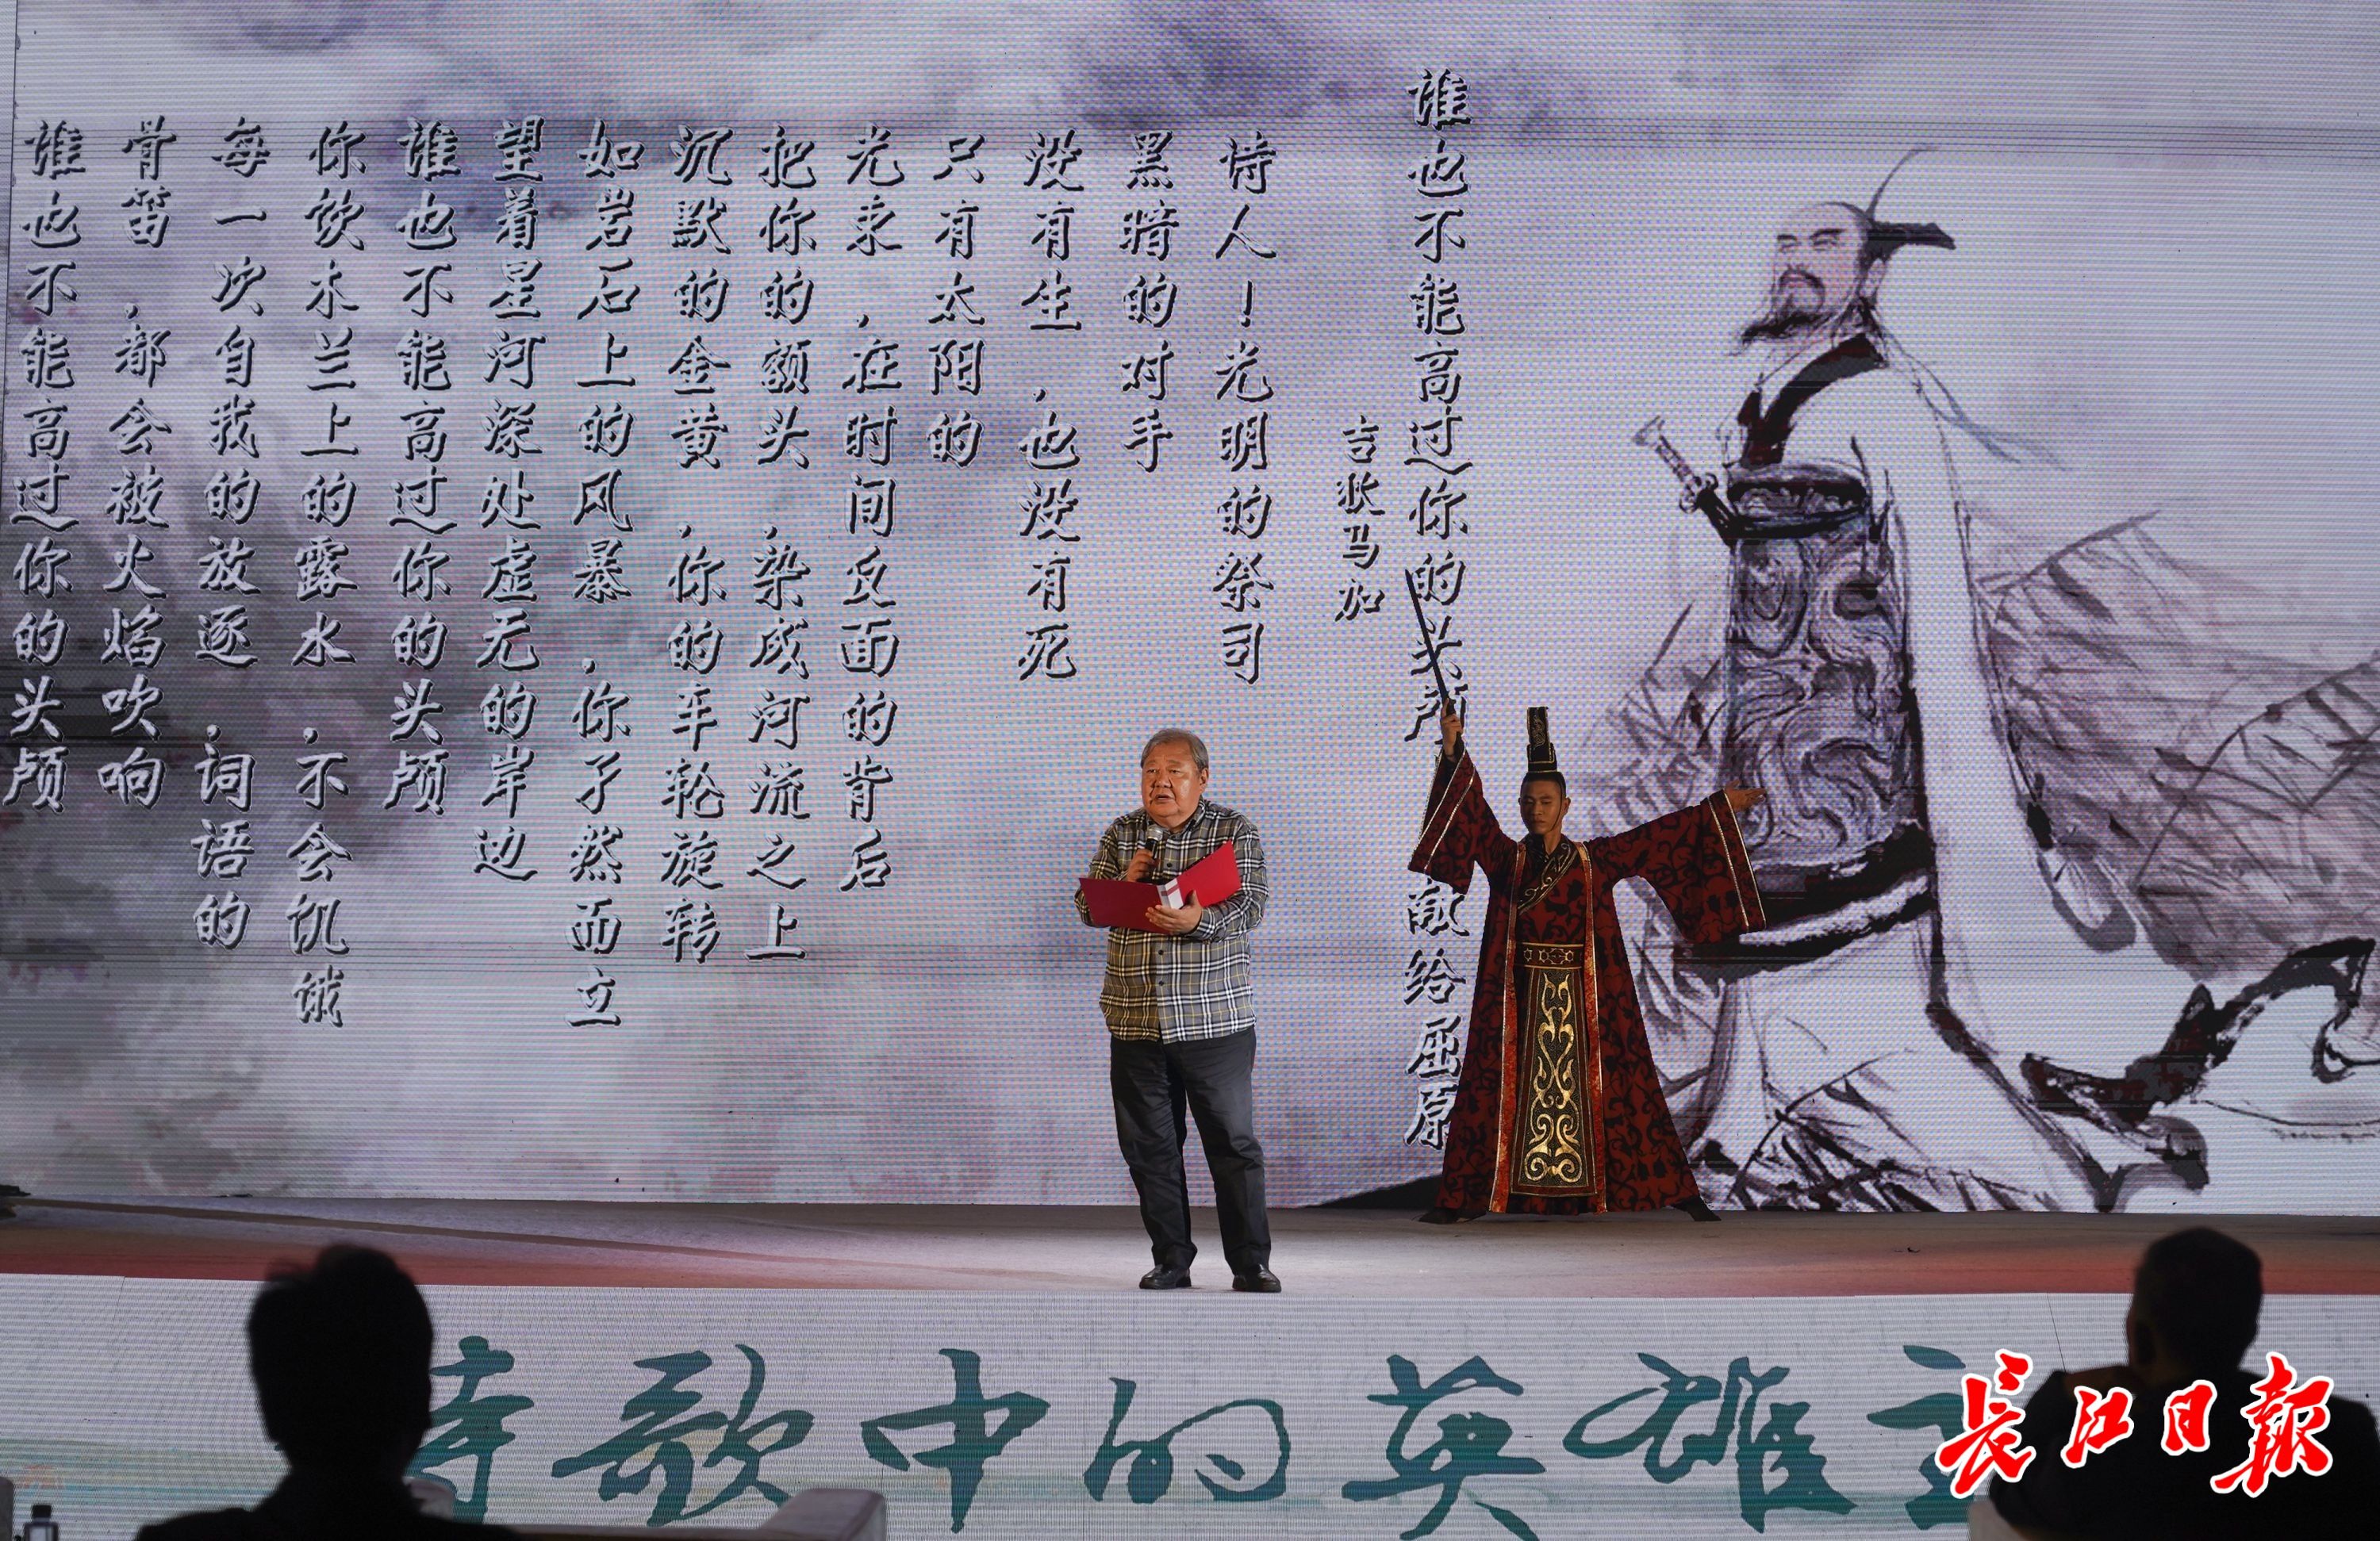 谁也不能高过你的头颅献给屈原
吉狄马加
诗人！光明的祭司
黑暗的对手
没有生，也没有死
只有太阳的
光束，在时间反面的背后
把你的额头，染成河流之上
沉默的金黄，你的车轮旋转
如岩石上的风暴，你孑然而立
望着星河深处虚无的岸边
谁也不能高过你的头颅
你饮木兰上的露水，不会饥饿
每一次自我的放逐，词语的
骨笛，都会被火焰吹响
谁也不能高过你的头颅
诗歌中的英雄
长江日报